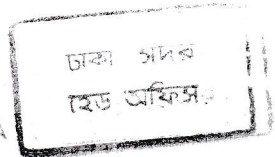 ঢাকা সদর
হেড অফিস